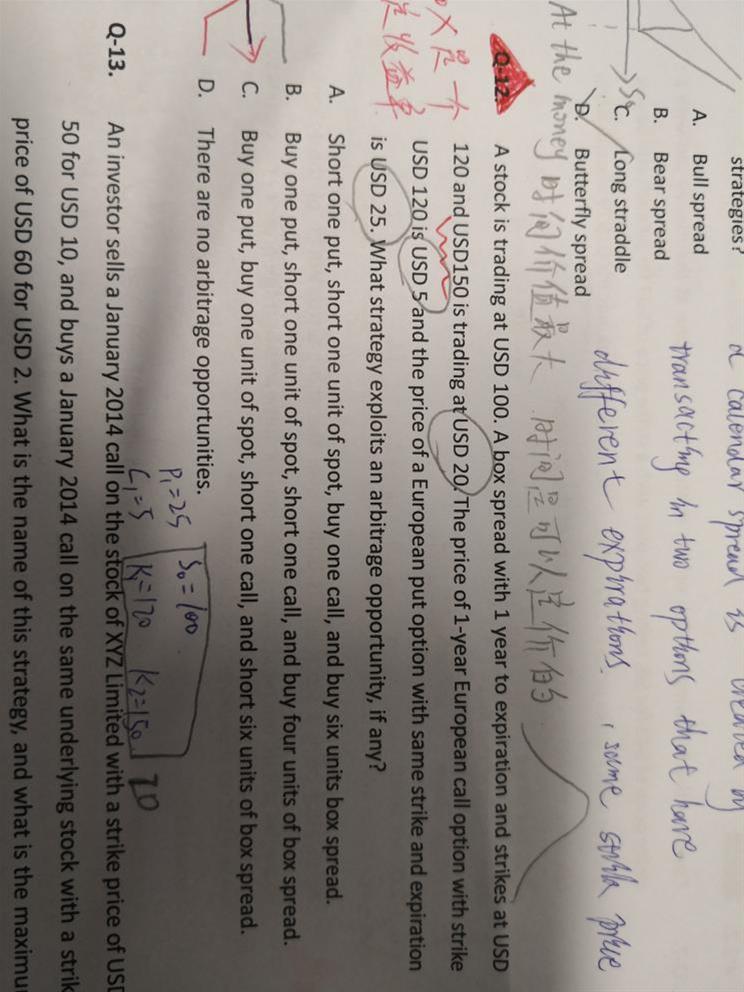 strategies?
A. Bull spread
B. Bear spread
C. Long straddle
D. Butterfly spread
a calendar spread is created by
transacting in two options that have
different expirations, same strike price
At the money 时间价值最大 时间是可以定价的
Q-12. A stock is trading at USD 100. A box spread with 1 year to expiration and strikes at USD
120 and USD150 is trading at USD 20. The price of 1-year European call option with strike
USD 120 is USD 5 and the price of a European put option with same strike and expiration
is USD 25. What strategy exploits an arbitrage opportunity, if any?
A. Short one put, short one unit of spot, buy one call, and buy six units box spread.
B. Buy one put, short one unit of spot, short one call, and buy four units of box spread.
C. Buy one put, buy one unit of spot, short one call, and short six units of box spread.
D. There are no arbitrage opportunities.
S₀=100
P₁=25
C₁=5
K₁=120 K₂=150
20
Q-13. An investor sells a January 2014 call on the stock of XYZ Limited with a strike price of USD
50 for USD 10, and buys a January 2014 call on the same underlying stock with a strik
price of USD 60 for USD 2. What is the name of this strategy, and what is the maximu